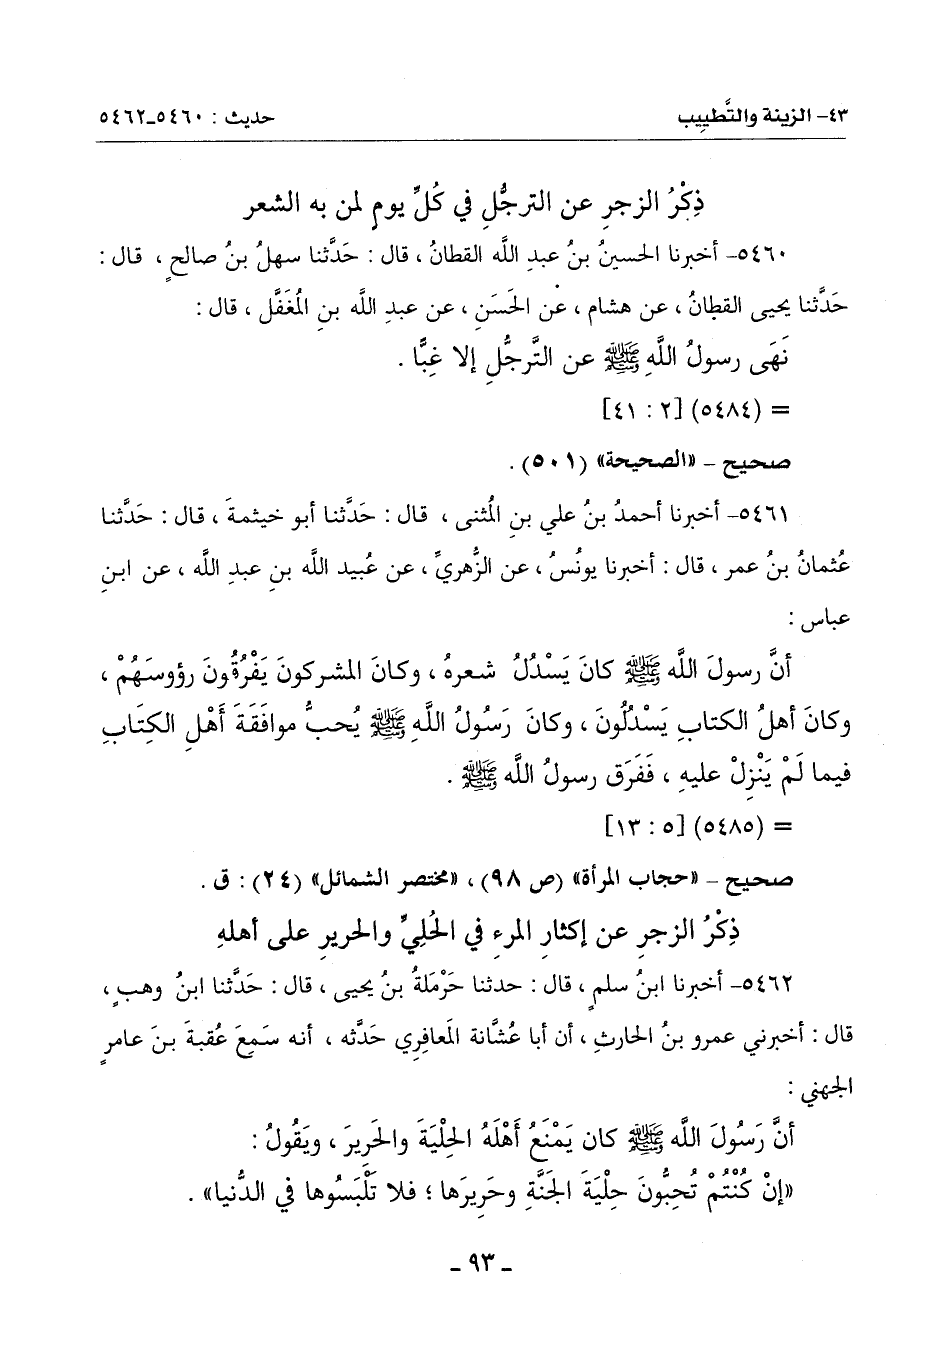 ٤٣- الزينة والتَّطييب
حديث : ٥٤٦٠ـ٥٤٦٢
ذِكْرُ الزجرِ عن الترجُّلِ في كُلِّ يومٍ لمن به الشعر
٥٤٦٠- أخبرنا الحسينُ بنُ عبدِ اللَّه القطانُ ، قال : حَدَّثنا سهلُ بنُ صالحٍ ، قال :
حَدَّثنا يحيى القطانُ ، عن هشام ، عن الحَسَنِ ، عن عبدِ اللَّه بنِ المُغَفَّل ، قال :
نَهَى رسولُ اللَّهِ ﷺ عن التَّرجُّلِ إلا غِبًّا .
= (٥٤٨٤) [٢ : ٤١]
صحيح - «الصحيحة» (٥٠١) .
٥٤٦١- أخبرنا أحمدُ بنُ علي بنِ المُثنى ، قال : حَدَّثنا أبو خيثمةَ ، قال : حَدَّثنا
عُثمانُ بنُ عمر ، قال : أخبرنا يونُسُ ، عن الزُّهريِّ ، عن عُبيد اللَّه بنِ عبدِ اللَّه ، عن ابنِ
عباس :
أنَّ رسولَ اللَّه ﷺ كانَ يَسْدُلُ شعرهُ ، وكانَ المشركونَ يَفْرُقُونَ رؤوسَهُمْ ،
وكانَ أهلُ الكتابِ يَسْدُلُونَ ، وكانَ رَسُولُ اللَّهِ ﷺ يُحبُّ موافَقَةَ أَهْلِ الكِتَابِ
فيما لَمْ يَنْزِلْ عليهِ ، فَفَرَق رسولُ اللَّه ﷺ .
= (٥٤٨٥) [٥ : ١٣]
صحيح - «حجاب المرأة» (ص ٩٨) ، «مختصر الشمائل» (٢٤) : ق .
ذِكْرُ الزجرِ عن إكثارِ المرءِ في الحُلِيِّ والحريرِ على أهلهِ
٥٤٦٢- أخبرنا ابنُ سلمٍ ، قال : حدثنا حَرْمَلةُ بنُ يحيى ، قال : حَدَّثنا ابنُ وهبٍ ،
قال : أخبرني عمرو بنُ الحارثِ ، أن أبا عُشَّانة المَعافِري حَدَّثه ، أنه سَمِعَ عُقبةَ بنَ عامرٍ
الجهني :
أنَّ رَسُولَ اللَّه ﷺ كان يَمْنَعُ أَهْلَهُ الحِلْيَةَ والحَرِيرَ ، ويَقُولُ :
«إنْ كُنْتُمْ تُحبُّونَ حِلْيَةَ الجَنَّةِ وحَرِيرَها ؛ فلا تَلْبَسُوها في الدُّنيا» .
ـ ٩٣ ـ